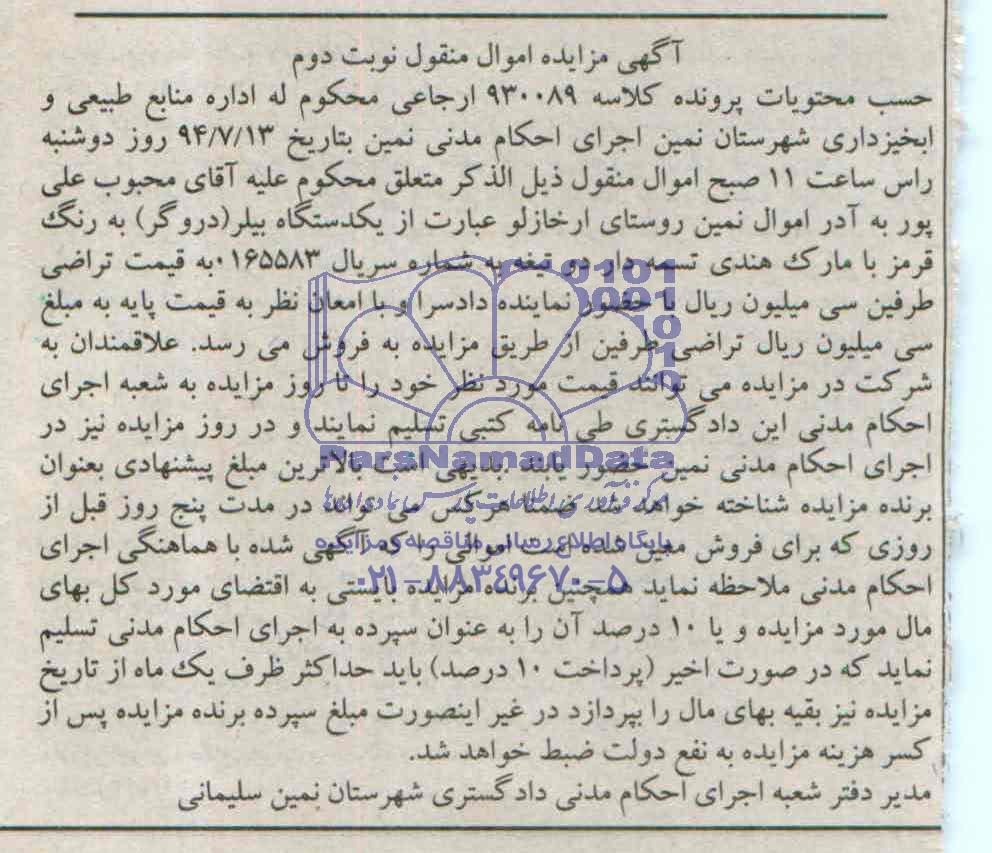 آگهی مزایده اموال منقول نوبت دوم
حسب محتویات پرونده کلاسه ۹۳۰۰۸۹ ارجاعی محکوم له اداره منابع طبیعی و
ابخیزداری شهرستان نمین اجرای احکام مدنی نمین بتاریخ ۹۴/۷/۱۳ روز دوشنبه
راس ساعت ۱۱ صبح اموال منقول ذیل الذکر متعلق محکوم علیه آقای محبوب علی
پور به آدر اموال نمین روستای ارخازلو عبارت از یکدستگاه بیلر(دروگر) به رنگ
قرمز با مارک هندی تسمه دار دو تیغه به شماره سریال ۰۱۶۵۵۸۳به قیمت تراضی
طرفین سی میلیون ریال با حضور نماینده دادسرا و با امعان نظر به قیمت پایه به مبلغ
سی میلیون ریال تراضی طرفین از طریق مزایده به فروش می رسد. علاقمندان به
شرکت در مزایده می توانند قیمت مورد نظر خود را تا روز مزایده به شعبه اجرای
احکام مدنی این دادگستری طی نامه کتبی تسلیم نمایند و در روز مزایده نیز در
اجرای احکام مدنی نمین حضور یابند بدیهی است بالاترین مبلغ پیشنهادی بعنوان
ParsNamadData
برنده مزایده شناخته خواهد شد ضمنا هرکس می تواند در مدت پنج روز قبل از
روزی که برای فروش معین شده است اموالی را که آگهی شده با هماهنگی اجرای
پایگاه اطلاع رسانی مناقصه و مزایده
احکام مدنی ملاحظه نماید همچنین برنده مزایده بایستی به اقتضای مورد کل بهای
۰۲۱-۸۸۳۴۹۶۷۰-۵
مال مورد مزایده و یا ۱۰ درصد آن را به عنوان سپرده به اجرای احکام مدنی تسلیم
نماید که در صورت اخیر (پرداخت ۱۰ درصد) باید حداکثر ظرف یک ماه از تاریخ
مزایده نیز بقیه بهای مال را بپردازد در غیر اینصورت مبلغ سپرده برنده مزایده پس از
کسر هزینه مزایده به نفع دولت ضبط خواهد شد.
مدیر دفتر شعبه اجرای احکام مدنی دادگستری شهرستان نمین سلیمانی